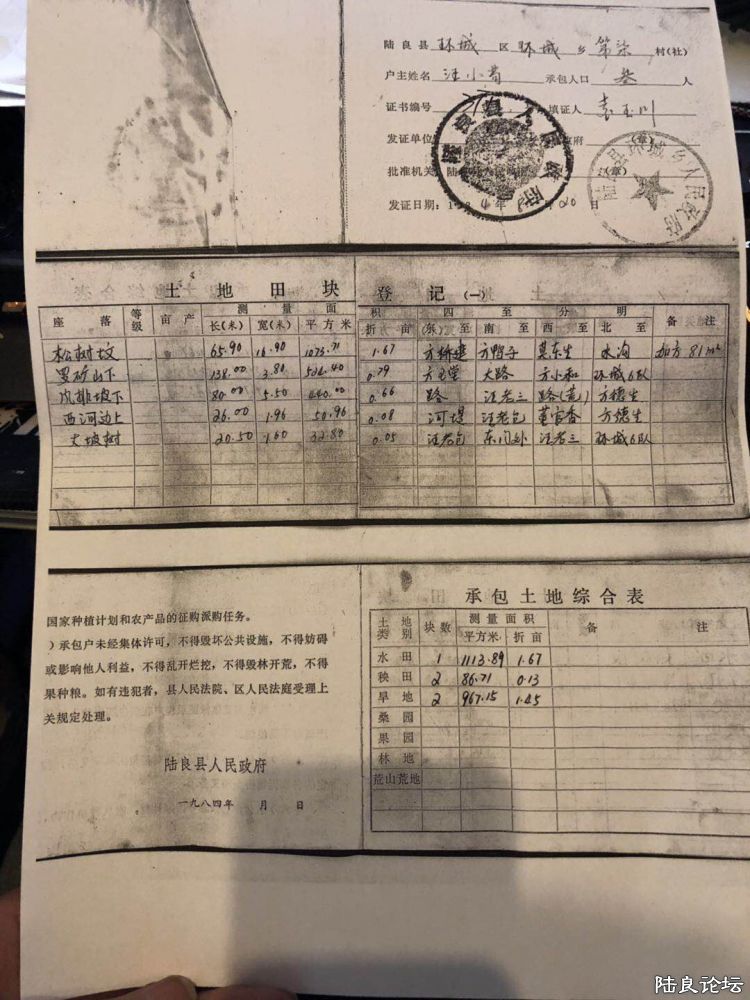 陆良县环城区环城乡第柒村(社)
户主姓名 汪小 承包人口 叁 人
证书编号 填证人 袁玉川
发证单位 府 (章)
批准机关 陆 (章)
发证日期：1 4年 20日
陆良县人民政府
乡人民政府
土地田块登记(一)
座落 等级 亩产 测量面积 四至分明 备注
长(米) 宽(米) 平方米 折亩 (东)至 南至 西至 北至
松树坟 65.90 16.90 1073.71 1.67 方 方 莫东生 水沟 加方81m²
山下 138.00 3.80 524.40 0.79 方 堂 大路 方小和 环城6队
坡下 80.00 5.50 440.00 0.66 路 汪老三 路(荒) 方德生
西河边上 26.00 1.96 50.96 0.08 河堤 汪老包 董官香 方德生
大坡树 20.50 1.60 32.80 0.05 汪老包 东门外 汪老三 环城6队
国家种植计划和农产品的征购派购任务。
）承包户未经集体许可，不得毁坏公共设施，不得妨碍
或影响他人利益，不得乱开烂挖，不得毁林开荒，不得
果种粮。如有违犯者，县人民法院、区人民法庭受理上
关规定处理。
陆良县人民政府
一九八四年 月 日
承包土地综合表
土地类别 块数 测量面积 备注
平方米 折亩
水田 1 1113.89 1.67
秧田 2 86.71 0.13
旱地 2 967.15 1.45
桑园
果园
林地
荒山荒地
陆良论坛